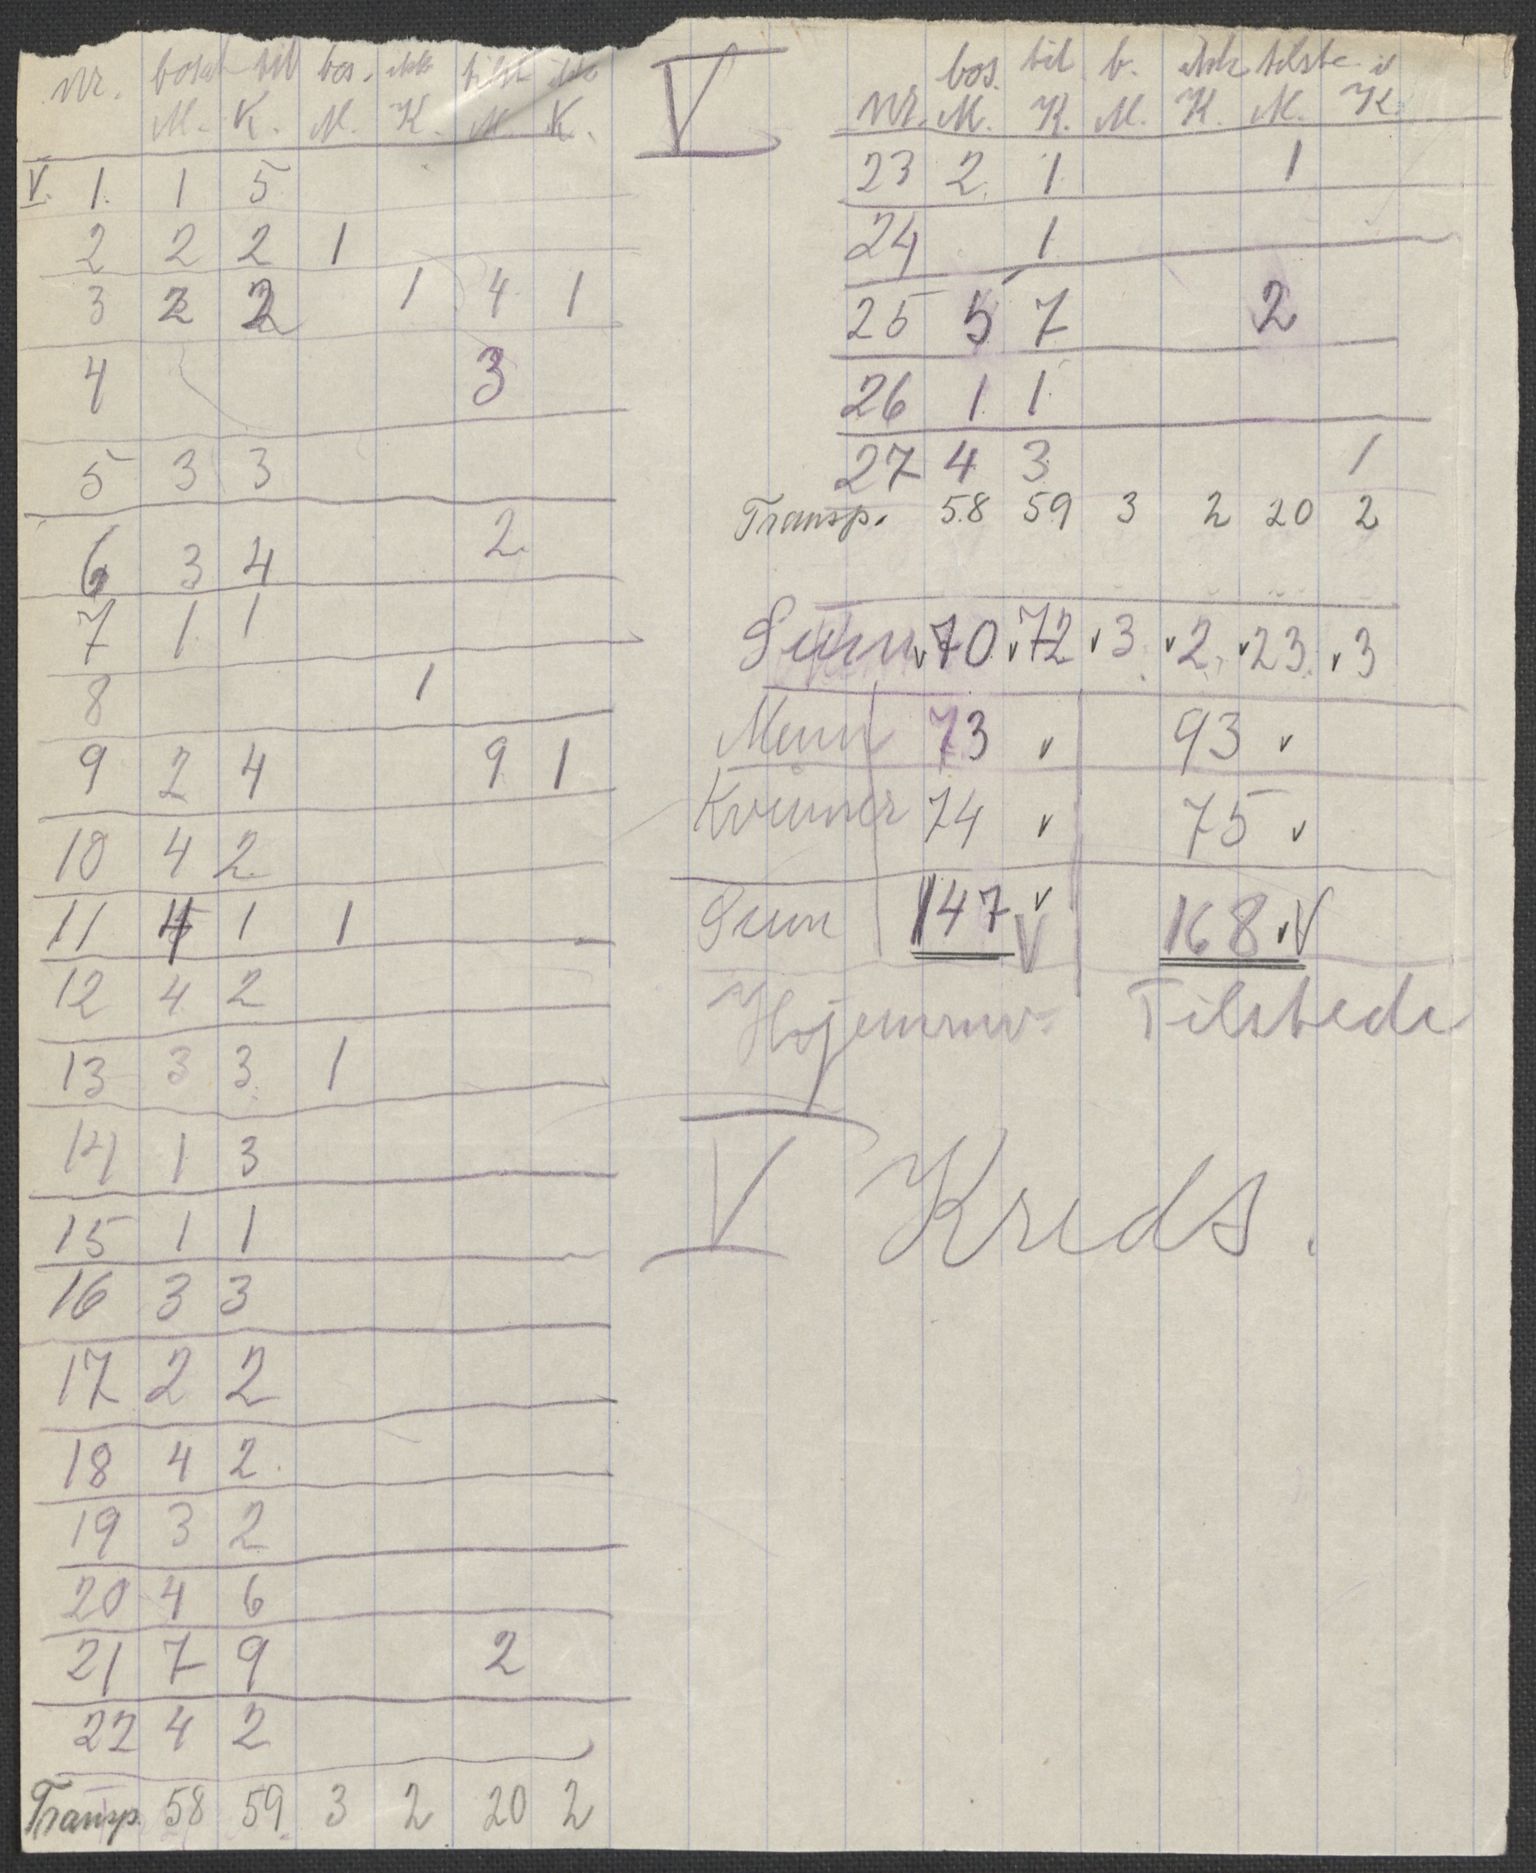 Nr. bosat til bos. ikk tilst ikke
M. K. M. K. M. K.
V. 1. 1 5
2 2 2 1
3 2 2 1 4 1
4 3
5 3 3
6 3 4 2
7 1 1
8 1
9 2 4 9 1
10 4 2
11 4 1 1
12 4 2
13 3 3 1
14 1 3
15 1 1
16 3 3
17 2 2
18 4 2
19 3 2
20 4 6
21 7 9 2
22 4 2
Transp. 58 59 3 2 20 2
V
bos. til b. ikk tilste
Nr. M. K. M. K. M. K.
23 2 1 1
24 1
25 5 7 2
26 1 1
27 4 3 1
Transp. 58 59 3 2 20 2
Sum 70 72 3 2 23 3
Menn 73 93
Kvinner 74 75
Sum 147 168
Hjemmv. Tilstede
V Kreds.